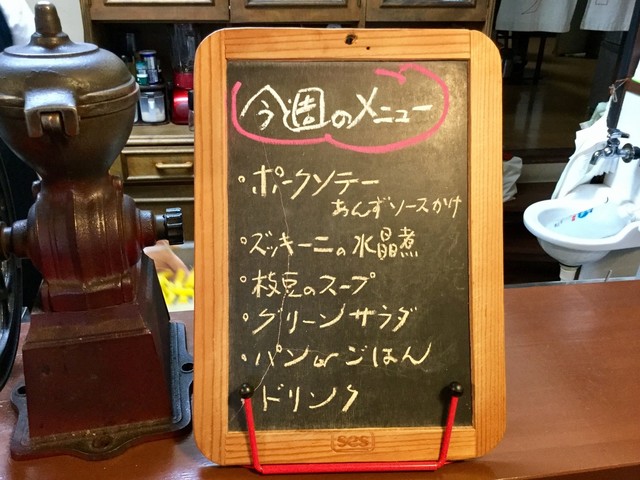 今週のメニュー
・ポークソテー
あんずソースかけ
・ズッキーニの水晶煮
・枝豆のスープ
・グリーンサラダ
・パンorごはん
・ドリンク
SGS